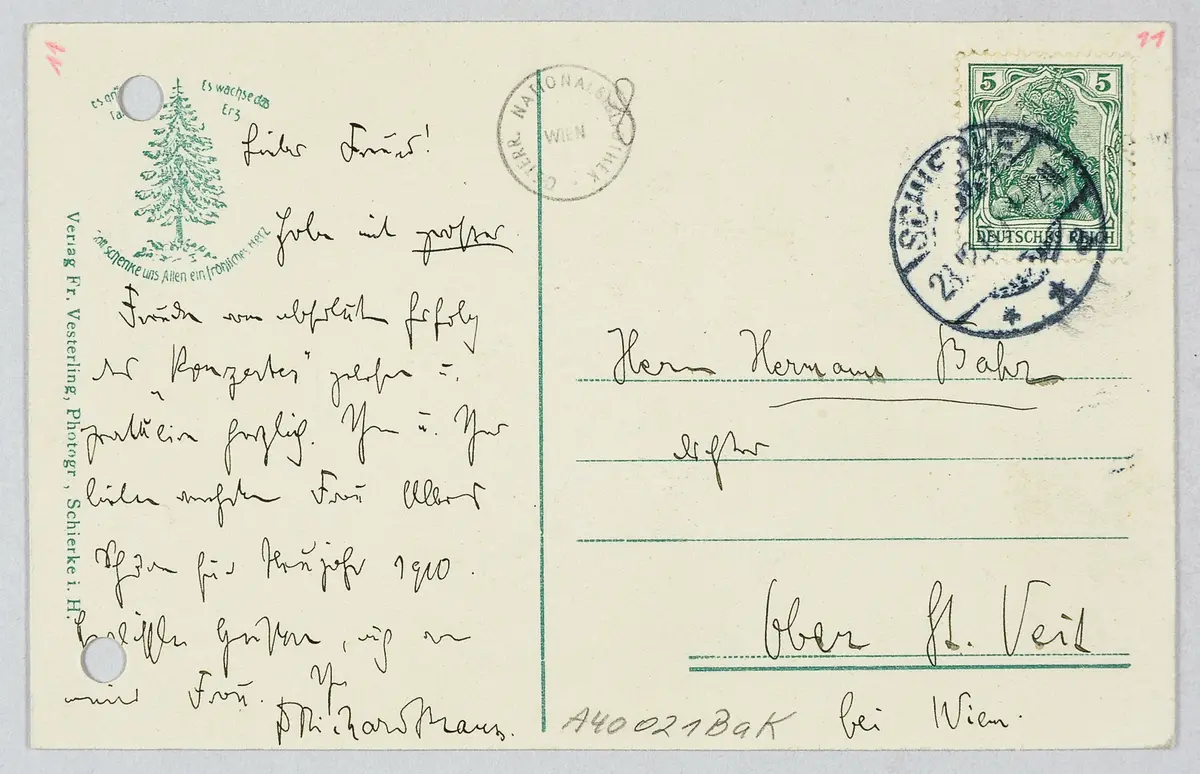 11
11
Es wachse das
Erz
schenke uns Allen ein fröhliches Herz
Verlag Fr. Vesterling, Photogr., Schierke i. H.
Lieber Freund!
Habe mit grosser
Freude vom absoluten Erfolg
des „Konzertes" gelesen u.
gratuliere herzlich. Ihnen u. Ihrer
lieben verehrten Frau Alles
Schöne für Neujahr 1910.
Herzlichste Grüsse, auch von
meiner Frau.
Ihr
DrRichardStrauss.
ÖSTERR. NATIONALBIBLIOTHEK
WIEN
5 5
DEUTSCHES REICH
SCHIERKE
Herrn Hermann Bahr
Ober St. Veit
bei Wien.
A40021BaK